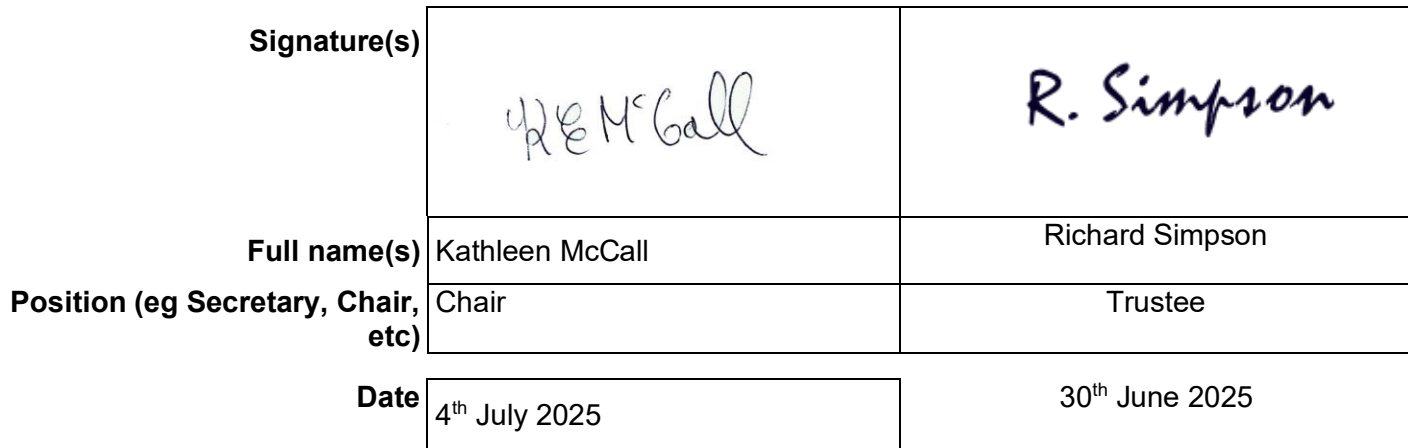 Signature(s)
KE McCall R. Simpson
Full name(s) Kathleen McCall Richard Simpson
Position (eg Secretary, Chair, Chair Trustee
etc)
Date 4th July 2025 30th June 2025